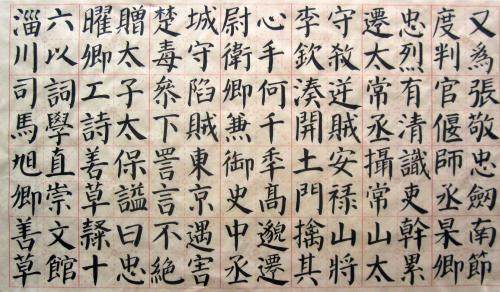 又為張敬忠劒南節
度判官偃師丞杲卿
忠烈有清識吏幹累
遷太常丞攝常山太
守殺逆賊安禄山將
李欽湊開土門擒其
心手何千秊髙邈遷
尉衛卿兼御史中丞
城守陷賊東京遇害
楚毒叅下詈言不絶
贈太子太保謚曰忠
曜卿工詩善草隸十
六以詞學直崇文館
淄川司馬旭卿善草